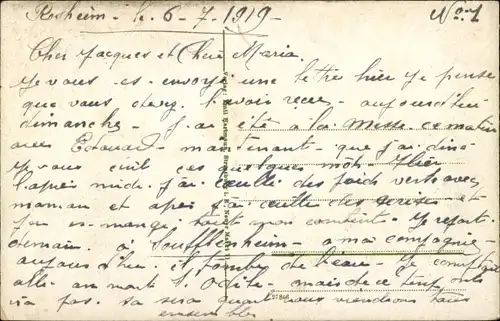 Rosheim - le 6-7-1919- No 1
Cher Jacques et Chère Maria.
Je vous es envoyé une lettre hier je pense
que vous devez l'avoir reçu - aujourd'hui
dimanche - J'ai été à la Messe ce matin
avec Edouard - maintenant que j'ai diné
je vous écris ces quelques mots - Hier
l'après midi j'ai cueilli des poids verts avec
maman et après j'ai cueilli des cerises et
j'en ai mangé, tout mon content - Je repart
demain à Soufflenheim - a ma compagnie -
aujourd'hui il tombe de l'eau - Je comptais
allé au mont St Odile - mais de ce temps
va pas. sa sera quant nous viendrons tous
ensembles